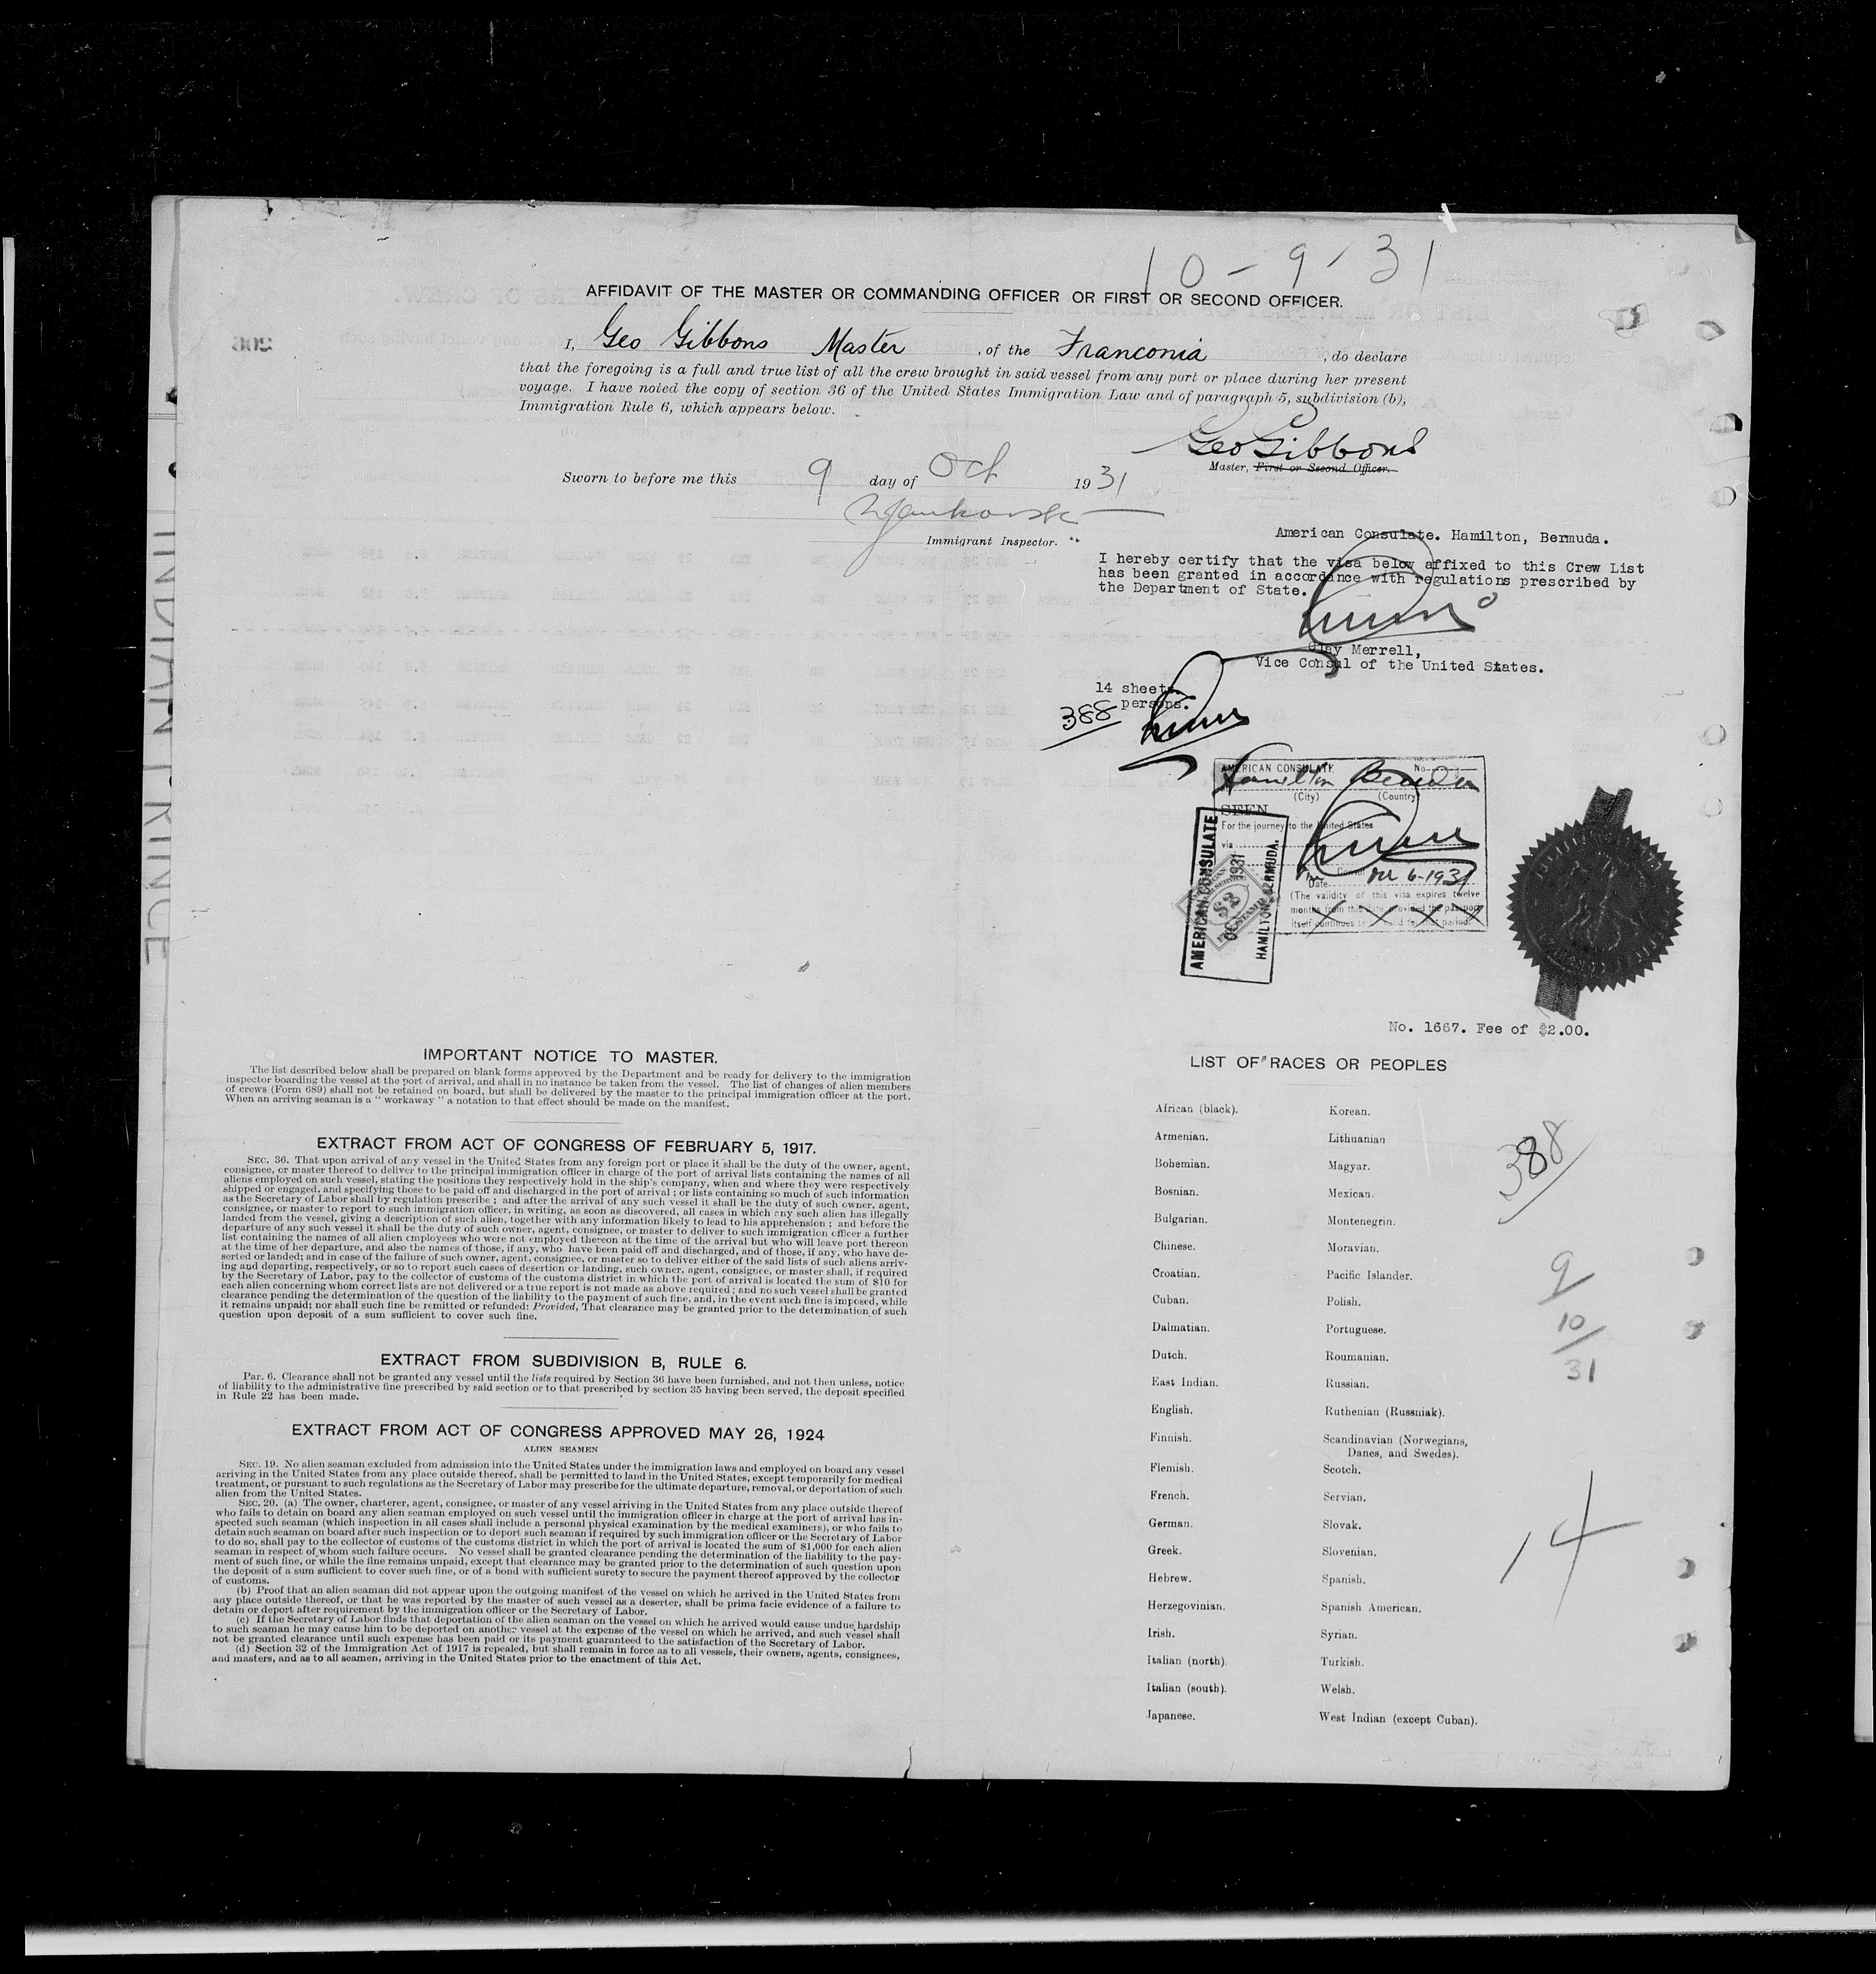 10-9-31
AFFIDAVIT OF THE MASTER OR COMMANDING OFFICER OR FIRST OR SECOND OFFICER.
I, Geo Gibbons Master, of the Franconia, do declare
that the foregoing is a full and true list of all the crew brought in said vessel from any port or place during her present
voyage. I have noted the copy of section 36 of the United States Immigration Law and of paragraph 5, subdivision (b),
Immigration Rule 6, which appears below.
Geo Gibbons
Master, First or Second Officer.
Sworn to before me this 9 day of Oct 1931
Immigrant Inspector.
American Consulate. Hamilton, Bermuda.
I hereby certify that the visa below affixed to this Crew List
has been granted in accordance with regulations prescribed by
the Department of State.
Clay Merrell,
Vice Consul of the United States.
14 sheets.
388 persons.
AMERICAN CONSULATE No.
Hamilton Bermuda
(City) (Country)
SEEN
For the journey to the United States
via
Date Oct 6-1931
(The validity of this visa expires twelve
months from this date provided the passport
itself continues to be valid for that period.
AMERICAN CONSULATE
$2
OCT 1931
HAMILTON, BERMUDA.
No. 1667. Fee of $2.00.
IMPORTANT NOTICE TO MASTER.
The list described below shall be prepared on blank forms approved by the Department and be ready for delivery to the immigration
inspector boarding the vessel at the port of arrival, and shall in no instance be taken from the vessel. The list of changes of alien members
of crews (Form 689) shall not be retained on board, but shall be delivered by the master to the principal immigration officer at the port.
When an arriving seaman is a "workaway" a notation to that effect should be made on the manifest.
EXTRACT FROM ACT OF CONGRESS OF FEBRUARY 5, 1917.
SEC. 36. That upon arrival of any vessel in the United States from any foreign port or place it shall be the duty of the owner, agent,
consignee, or master thereof to deliver to the principal immigration officer in charge of the port of arrival lists containing the names of all
aliens employed on such vessel, stating the positions they respectively hold in the ship's company, when and where they were respectively
shipped or engaged, and specifying those to be paid off and discharged in the port of arrival; or lists containing so much of such information
as the Secretary of Labor shall by regulation prescribe; and after the arrival of any such vessel it shall be the duty of such owner, agent,
consignee, or master to report to such immigration officer, in writing, as soon as discovered, all cases in which any such alien has illegally
landed from the vessel, giving a description of such alien, together with any information likely to lead to his apprehension; and before the
departure of any such vessel it shall be the duty of such owner, agent, consignee, or master to deliver to such immigration officer a further
list containing the names of all alien employees who were not employed thereon at the time of the arrival but who will leave port thereon
at the time of her departure, and also the names of those, if any, who have been paid off and discharged, and of those, if any, who have de-
serted or landed; and in case of the failure of such owner, agent, consignee, or master so to deliver either of the said lists of such aliens arriv-
ing and departing, respectively, or so to report such cases of desertion or landing, such owner, agent, consignee, or master shall, if required
by the Secretary of Labor, pay to the collector of customs of the customs district in which the port of arrival is located the sum of $10 for
each alien concerning whom correct lists are not delivered or a true report is not made as above required; and no such vessel shall be granted
clearance pending the determination of the question of the liability to the payment of such fine, and, in the event such fine is imposed, while
it remains unpaid; nor shall such fine be remitted or refunded: Provided, That clearance may be granted prior to the determination of such
question upon deposit of a sum sufficient to cover such fine.
EXTRACT FROM SUBDIVISION B, RULE 6.
Par. 6. Clearance shall not be granted any vessel until the lists required by Section 36 have been furnished, and not then unless, notice
of liability to the administrative fine prescribed by said section or to that prescribed by section 35 having been served, the deposit specified
in Rule 22 has been made.
EXTRACT FROM ACT OF CONGRESS APPROVED MAY 26, 1924
ALIEN SEAMEN
SEC. 19. No alien seaman excluded from admission into the United States under the immigration laws and employed on board any vessel
arriving in the United States from any place outside thereof, shall be permitted to land in the United States, except temporarily for medical
treatment, or pursuant to such regulations as the Secretary of Labor may prescribe for the ultimate departure, removal, or deportation of such
alien from the United States.
SEC. 20. (a) The owner, charterer, agent, consignee, or master of any vessel arriving in the United States from any place outside thereof
who fails to detain on board any alien seaman employed on such vessel until the immigration officer in charge at the port of arrival has in-
spected such seaman (which inspection in all cases shall include a personal physical examination by the medical examiners), or who fails to
detain such seaman on board after such inspection or to deport such seaman if required by such immigration officer or the Secretary of Labor
to do so, shall pay to the collector of customs of the customs district in which the port of arrival is located the sum of $1,000 for each alien
seaman in respect of whom such failure occurs. No vessel shall be granted clearance pending the determination of the liability to the pay-
ment of such fine, or while the fine remains unpaid, except that clearance may be granted prior to the determination of such question upon
the deposit of a sum sufficient to cover such fine, or of a bond with sufficient surety to secure the payment thereof approved by the collector
of customs.
(b) Proof that an alien seaman did not appear upon the outgoing manifest of the vessel on which he arrived in the United States from
any place outside thereof, or that he was reported by the master of such vessel as a deserter, shall be prima facie evidence of a failure to
detain or deport after requirement by the immigration officer or the Secretary of Labor.
(c) If the Secretary of Labor finds that deportation of the alien seaman on the vessel on which he arrived would cause undue hardship
to such seaman he may cause him to be deported on another vessel at the expense of the vessel on which he arrived, and such vessel shall
not be granted clearance until such expense has been paid or its payment guaranteed to the satisfaction of the Secretary of Labor.
(d) Section 32 of the Immigration Act of 1917 is repealed, but shall remain in force as to all vessels, their owners, agents, consignees,
and masters, and as to all seamen, arriving in the United States prior to the enactment of this Act.
LIST OF RACES OR PEOPLES
African (black). Korean.
Armenian. Lithuanian
Bohemian. Magyar.
Bosnian. Mexican.
Bulgarian. Montenegrin.
Chinese. Moravian.
Croatian. Pacific Islander.
Cuban. Polish.
Dalmatian. Portuguese.
Dutch. Roumanian.
East Indian. Russian.
English. Ruthenian (Russniak).
Finnish. Scandinavian (Norwegians,
Danes, and Swedes).
Flemish. Scotch.
French. Servian.
German. Slovak.
Greek. Slovenian.
Hebrew. Spanish.
Herzegovinian. Spanish American.
Irish. Syrian.
Italian (north). Turkish.
Italian (south). Welsh.
Japanese. West Indian (except Cuban).
388
9
10
31
14